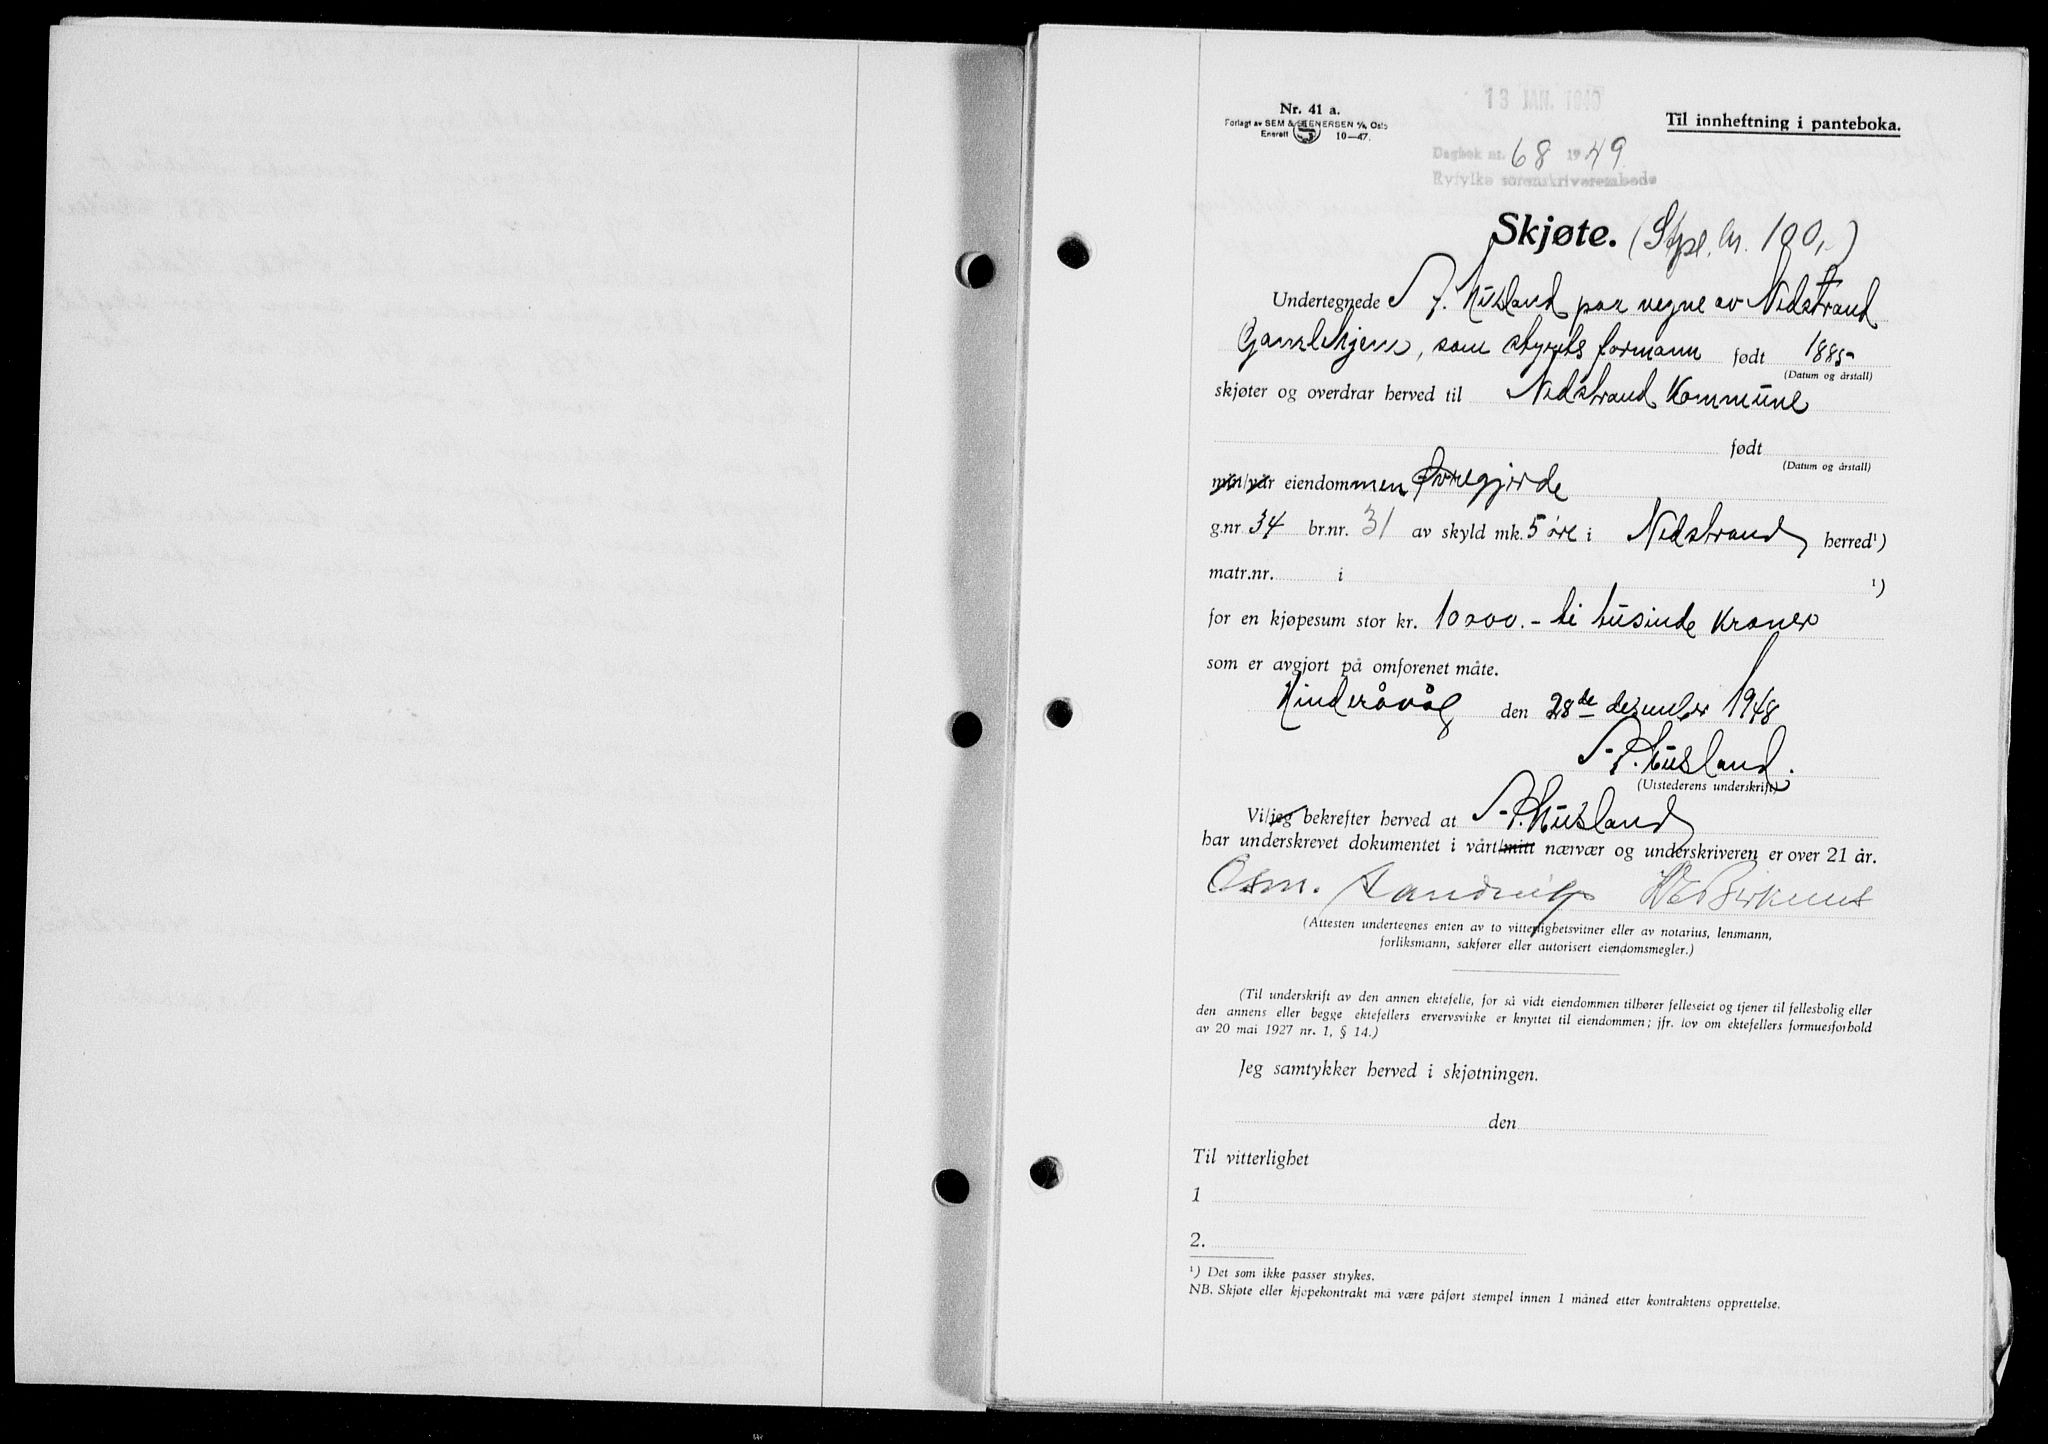 13 JAN. 1949
Nr. 41 a.
Til innheftning i panteboka.
Forlagt av SEM & STENERSEN A/S, Oslo
Enerett 10—47.
Dagbok nr. 68 1949
Ryfylke sorenskriverembede
Skjøte. (Stpl. kr. 100,-)
Undertegnede S. P. Husland paa vegne av Nedstrand
Gamlehjem, som styrets formann født 1885-
(Datum og årstall)
skjøter og overdrar herved til Nedstrand Kommune
født
(Datum og årstall)
min/vår eiendommen Øvregjerde
g.nr. 34 br.nr. 31 av skyld mk. 5 øre i Nedstrand herred¹)
matr.nr. i ¹)
for en kjøpesum stor kr. 10000.- ti tusinde kroner
som er avgjort på omforenet måte.
Hinderåvåg den 28de dezember 1948
S. P. Husland.
(Utstederens underskrift)
Vi/jeg bekrefter herved at S. P. Husland
har underskrevet dokumentet i vårt/mitt nærvær og underskriveren er over 21 år.
Osm.
(Attesten undertegnes enten av to vitterlighetsvitner eller av notarius, lensmann,
forliksmann, sakfører eller autorisert eiendomsmegler.)
(Til underskrift av den annen ektefelle, for så vidt eiendommen tilhører felleseiet og tjener til fellesbolig eller
den annens eller begge ektefellers ervervsvirke er knyttet til eiendommen; jfr. lov om ektefellers formuesforhold
av 20 mai 1927 nr. 1, § 14.)
Jeg samtykker herved i skjøtningen.
den
Til vitterlighet
1
2.
¹) Det som ikke passer strykes.
NB. Skjøte eller kjøpekontrakt må være påført stempel innen 1 måned etter kontraktens opprettelse.